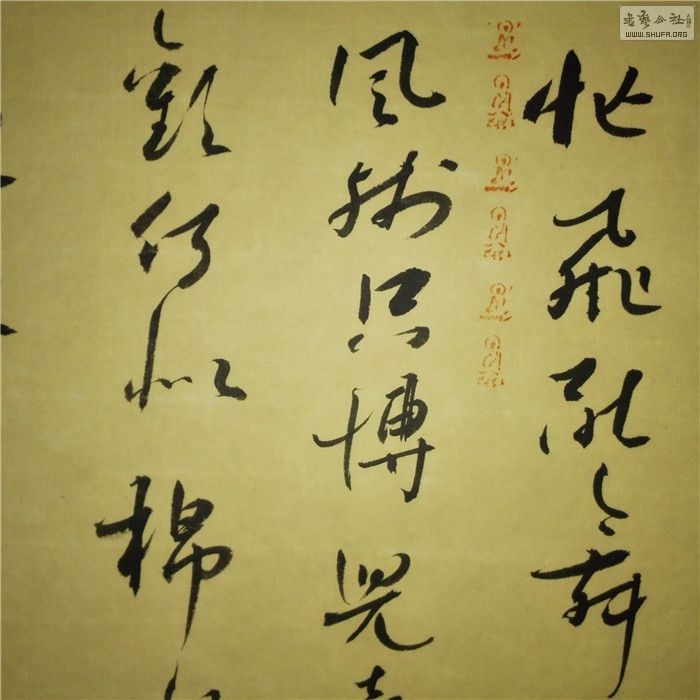 書藝公社
WWW.SHUFA.ORG
忙飛亂舞
風殘只博兒
歡何似棉